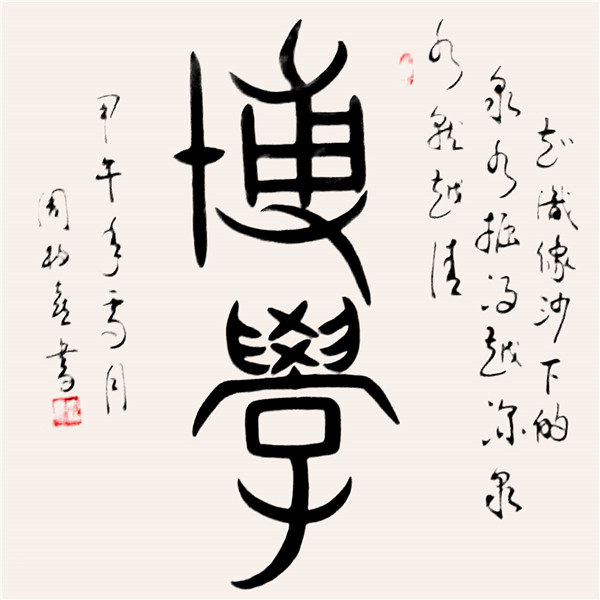 知識像沙下的
泉水掘得越深泉
水就越清
博學
甲午年月
周書